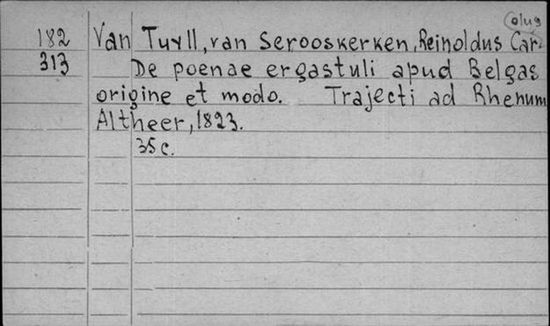 olus
182 Van Tuyll, van Serooskerken, Reinoldus Car-
313 De poenae ergastuli apud Belgas
origine et modo. Trajecti ad Rhenum
Altheer, 1823.
35c.